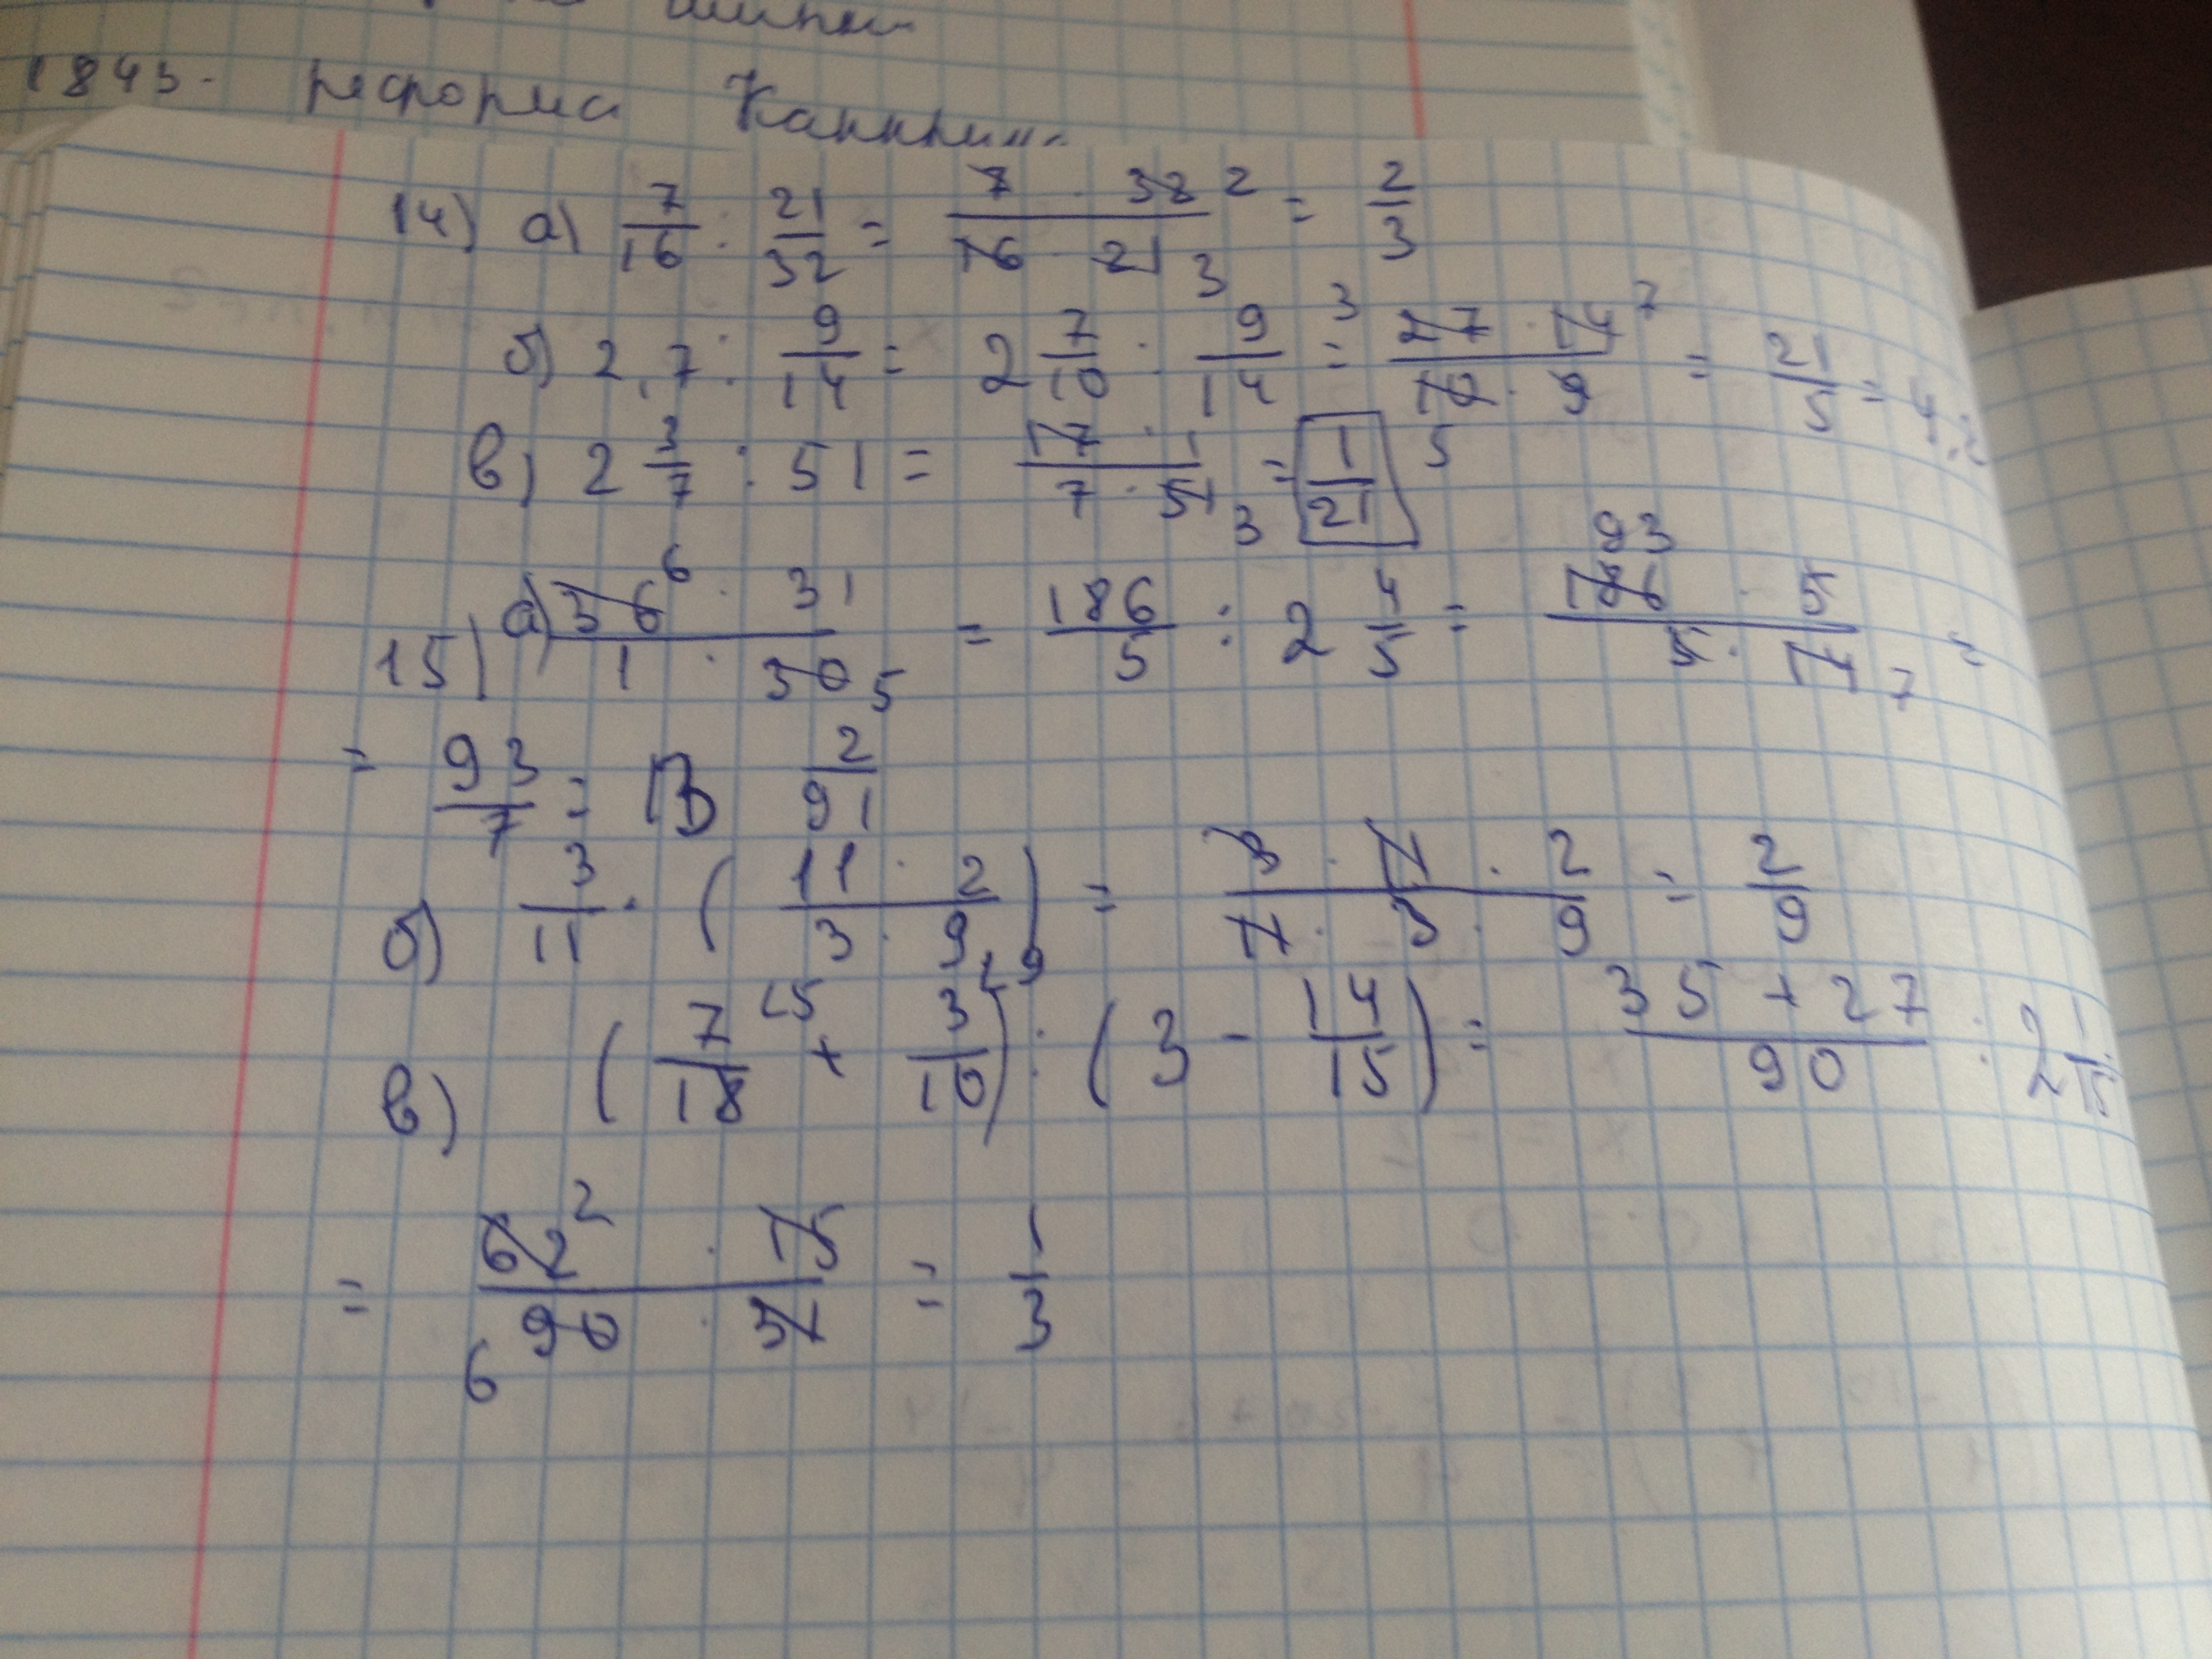 1843. реформа Канкрин
14) а) 7/16 : 21/32 = 7 · 32 2 / 16 · 21 3 = 2/3
б) 2,7 : 9/14 = 2 7/10 : 9/14 = 3 27 · 14 7 / 10 · 9 5 = 21/5 = 4,2
в) 2 3/7 : 51 = 17 · 1 / 7 · 51 3 = 1/21
15) а) 36 6 · 31 / 1 · 30 5 = 186/5 : 2 4/5 = 93 186 · 5 / 5 · 14 7 =
= 93/7 = 13 2/91
б) 3/11 · (11 · 2 / 3 · 9) = 3 · 11 · 2 / 11 · 3 · 9 = 2/9
в) (7/18 + 3/10) : (3 - 14/15) = 35 + 27 / 90 : 2 1/15
= 62 2 · 15 / 90 6 · 31 = 1/3